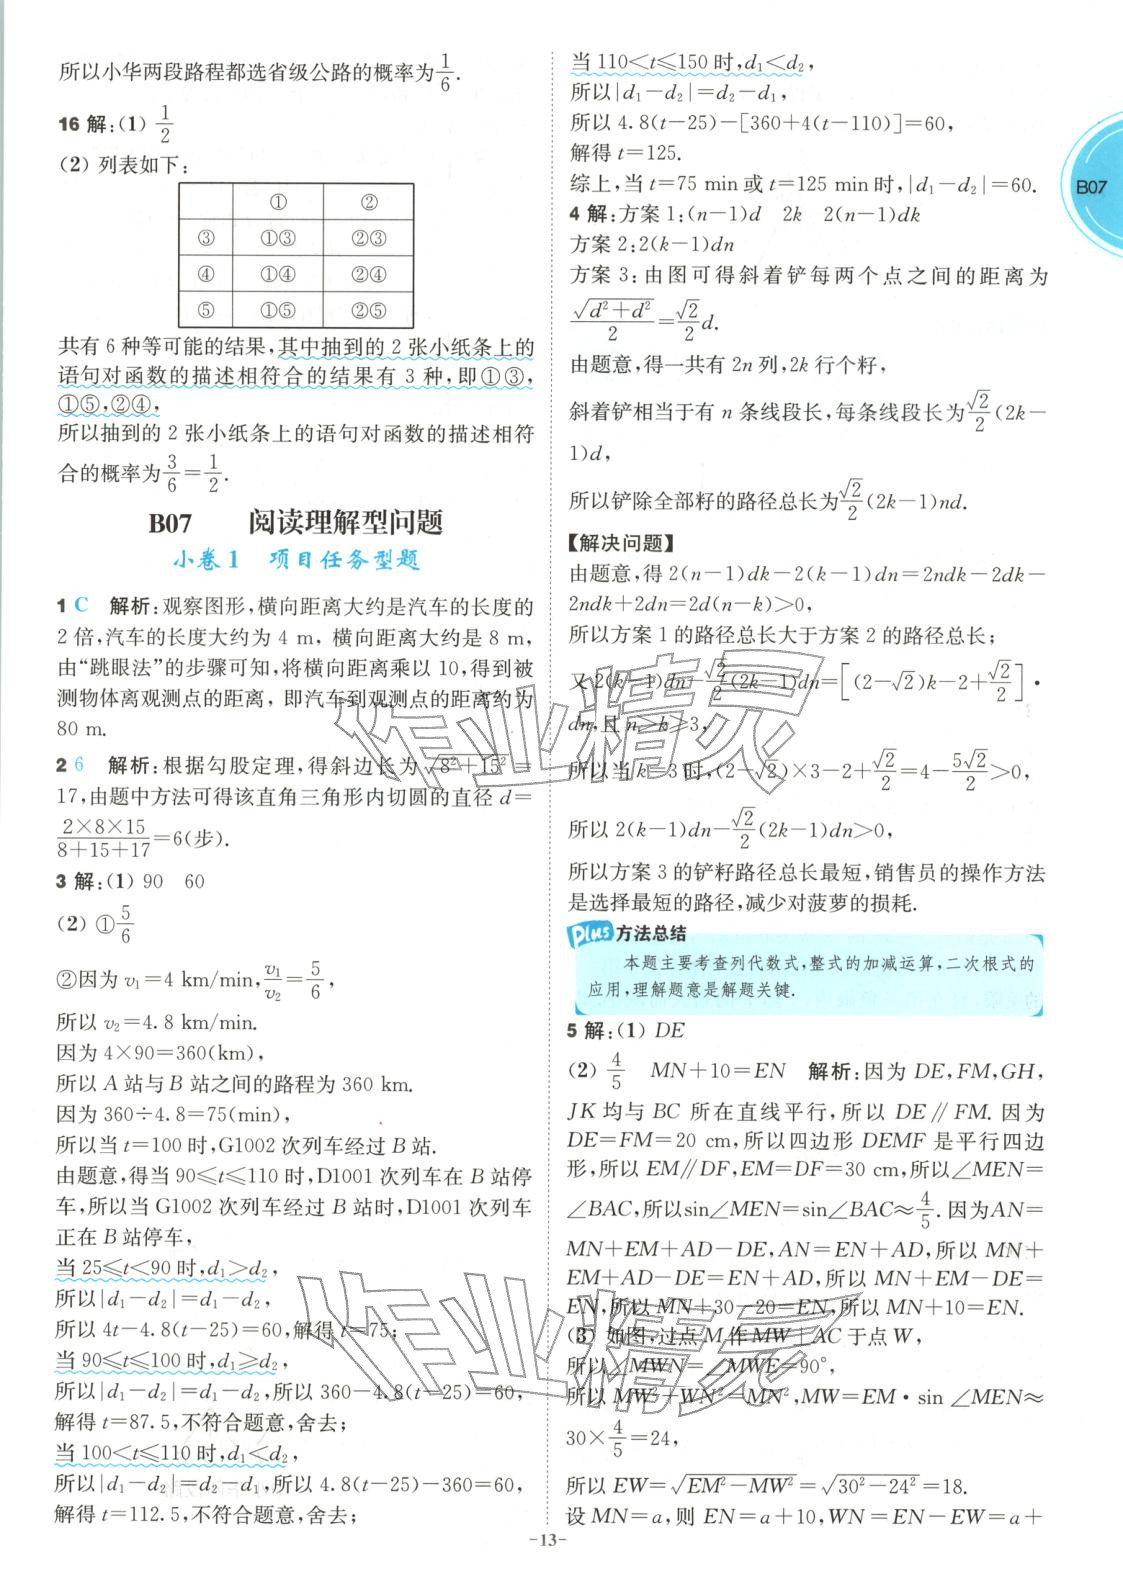 所以小华两段路程都选省级公路的概率为1/6.
16 解:(1) 1/2
(2) 列表如下:
① ②
③ ①③ ②③
④ ①④ ②④
⑤ ①⑤ ②⑤
共有 6 种等可能的结果,其中抽到的 2 张小纸条上的
语句对函数的描述相符合的结果有 3 种,即①③,
①⑤,②④,
所以抽到的 2 张小纸条上的语句对函数的描述相符
合的概率为3/6=1/2.
B07 阅读理解型问题
小卷 1 项目任务型题
1 C 解析:观察图形,横向距离大约是汽车的长度的
2 倍,汽车的长度大约为 4 m, 横向距离大约是 8 m,
由“跳眼法”的步骤可知,将横向距离乘以 10,得到被
测物体离观测点的距离, 即汽车到观测点的距离约为
80 m.
2 6 解析:根据勾股定理,得斜边长为√(8²+15²)=
17,由题中方法可得该直角三角形内切圆的直径 d=
(2×8×15)/(8+15+17)=6(步).
3 解:(1) 90 60
(2) ①5/6
②因为 v₁=4 km/min,v₁/v₂=5/6,
所以 v₂=4.8 km/min.
因为 4×90=360(km),
所以 A 站与 B 站之间的路程为 360 km.
因为 360÷4.8=75(min),
所以当 t=100 时,G1002 次列车经过 B 站.
由题意,得当 90≤t≤110 时,D1001 次列车在 B 站停
车,所以当 G1002 次列车经过 B 站时,D1001 次列车
正在 B 站停车,
当 25≤t<90 时,d₁>d₂,
所以|d₁-d₂|=d₁-d₂,
所以 4t-4.8(t-25)=60,解得 t=75;
当 90≤t≤100 时,d₁≥d₂,
所以|d₁-d₂|=d₁-d₂,所以 360-4.8(t-25)=60,
解得 t=87.5,不符合题意,舍去;
当 100<t≤110 时,d₁<d₂,
所以|d₁-d₂|=d₂-d₁,所以 4.8(t-25)-360=60,
解得 t=112.5,不符合题意,舍去;
当 110<t≤150 时,d₁<d₂,
所以|d₁-d₂|=d₂-d₁,
所以 4.8(t-25)-[360+4(t-110)]=60,
解得 t=125.
综上,当 t=75 min 或 t=125 min 时,|d₁-d₂|=60.
4 解:方案 1:(n-1)d 2k 2(n-1)dk
方案 2:2(k-1)dn
方案 3:由图可得斜着铲每两个点之间的距离为
√(d²+d²)/2=√2/2d.
由题意,得一共有 2n 列,2k 行个籽,
斜着铲相当于有 n 条线段长,每条线段长为√2/2(2k-
1)d,
所以铲除全部籽的路径总长为√2/2(2k-1)nd.
【解决问题】
由题意,得 2(n-1)dk-2(k-1)dn=2ndk-2dk-
2ndk+2dn=2d(n-k)>0,
所以方案 1 的路径总长大于方案 2 的路径总长;
又 2(k-1)dn-√2/2(2k-1)dn=[(2-√2)k-2+√2/2]·
dn,且 n>k≥3,
所以当 k=3 时,(2-√2)×3-2+√2/2=4-5√2/2>0,
所以 2(k-1)dn-√2/2(2k-1)dn>0,
所以方案 3 的铲籽路径总长最短,销售员的操作方法
是选择最短的路径,减少对菠萝的损耗.
Plus 方法总结
本题主要考查列代数式,整式的加减运算,二次根式的
应用,理解题意是解题关键.
5 解:(1) DE
(2) 4/5 MN+10=EN 解析:因为 DE,FM,GH,
JK 均与 BC 所在直线平行,所以 DE∥FM. 因为
DE=FM=20 cm,所以四边形 DEMF 是平行四边
形,所以 EM∥DF,EM=DF=30 cm,所以∠MEN=
∠BAC,所以sin∠MEN=sin∠BAC≈4/5.因为AN=
MN+EM+AD-DE,AN=EN+AD,所以 MN+
EM+AD-DE=EN+AD,所以 MN+EM-DE=
EN,所以 MN+30-20=EN,所以 MN+10=EN.
(3) 如图,过点 M 作 MW⊥AC 于点 W,
所以∠MWN=∠MWE=90°,
所以 MW²+WN²=MN²,MW=EM·sin ∠MEN≈
30×4/5=24,
所以 EW=√(EM²-MW²)=√(30²-24²)=18.
设 MN=a,则 EN=a+10,WN=EN-EW=a+
B07
-13-
作业精灵
作业精灵